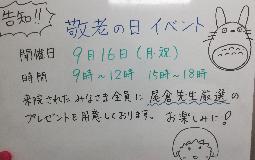 告知!!
敬老の日 イベント
開催日 9月16日(月・祝)
時間 9時〜12時 15時〜18時
来院されたみなさま全員に 尾倉先生厳選の
プレゼントを用意しております。 お楽しみに!